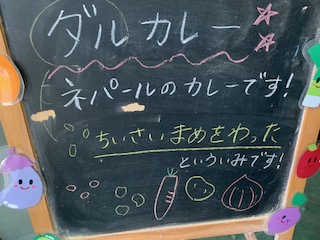 ダルカレー
ネパールのカレーです!
ちいさいまめをわった
といういみです!